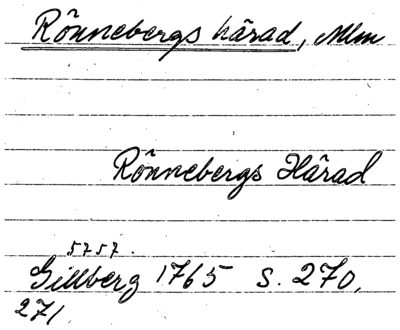 Rönnebergs härad, Mlm
Rönnebergs Härad
5757.
Gillberg 1765 s. 270,
271